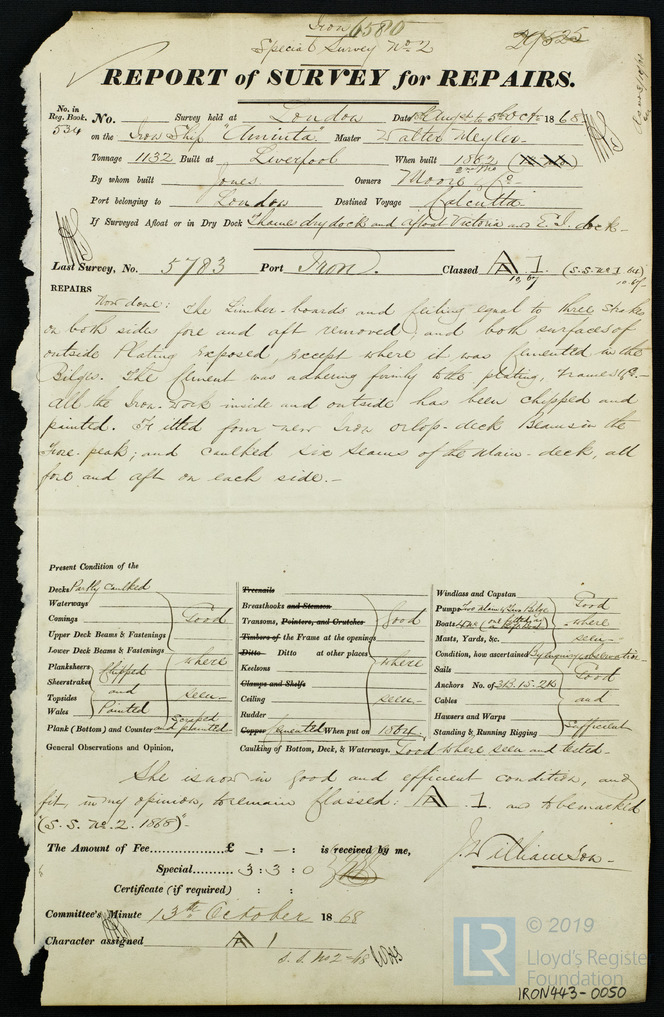 Iron 6580
Special Survey No. 2
REPORT of SURVEY for REPAIRS.
No. in Reg. Book. 534 No. Survey held at London Date Augst to 5th Oct 1868
on the Iron Ship "Aminta" Master Walter Meyler
Tonnage 1132 Built at Liverpool When built 1862
By whom built Jones Owners Moore & Co
Port belonging to London Destined Voyage Calcutta
If Surveyed Afloat or in Dry Dock Thames dry dock and afloat Victoria and E. I. dock
Last Survey, No. 5783 Port Iron. Classed A 1 (S.S. No 1 64)
REPAIRS
Now done: The limber-boards and ceiling equal to three strakes
on both sides fore and aft removed, and both surfaces of
outside Plating exposed, except where it was cemented in the
Bilges. The Cement was adhering firmly to the plating, Frames &c.
All the Iron-work inside and outside has been chipped and
painted. Fitted four new Iron orlop-deck Beams in the
Fore-peak; and caulked six seams of the Main-deck, all
fore and aft on each side.
Present Condition of the
Decks Partly Caulked
Waterways
Comings
Upper Deck Beams & Fastenings
Lower Deck Beams & Fastenings
Good where seen
Planksheers
Sheerstrakes
Topsides
Wales
Chipped and Painted
Plank (Bottom) and Counter Scraped and painted
General Observations and Opinion,
Treenails
Breasthooks and Stemson
Transoms, Pointers, and Crutches
Timbers of the Frame at the openings
Ditto Ditto at other places
Keelsons
Clamps and Shelfs
Ceiling
Rudder
Good where seen
Copper Cemented When put on 1864
Caulking of Bottom, Deck, & Waterways. Good where seen and tested
Windlass and Capstan
Pumps Two Main & Two Bilge
Boats
Masts, Yards, &c.
Good where seen
Condition, how ascertained By enquiry & observation
Sails
Anchors No. of 3B. 1S. 2K
Cables
Hawsers and Warps
Standing & Running Rigging
Good and Sufficient
She is now in good and efficient condition, and
fit, in my opinion, to remain Classed: A 1 and to be marked
(S. S. No. 2. 1868)
The Amount of Fee £ : : is received by me,
Special 3 : 3 : 0
J. Williamson
Certificate (if required) : :
Committee's Minute 13th October 1868
Character assigned A 1
S. S. No 2-68
© 2019
LR
Lloyd's Register
Foundation
IRON443-0050